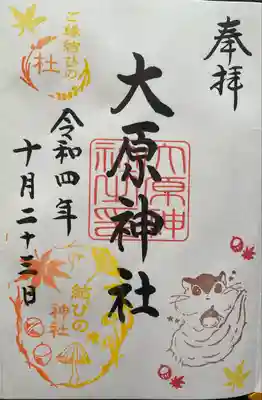 奉拝
大原神社
大原神社之印
令和四年
十月二十三日
ご縁結びの
社
結びの
神社